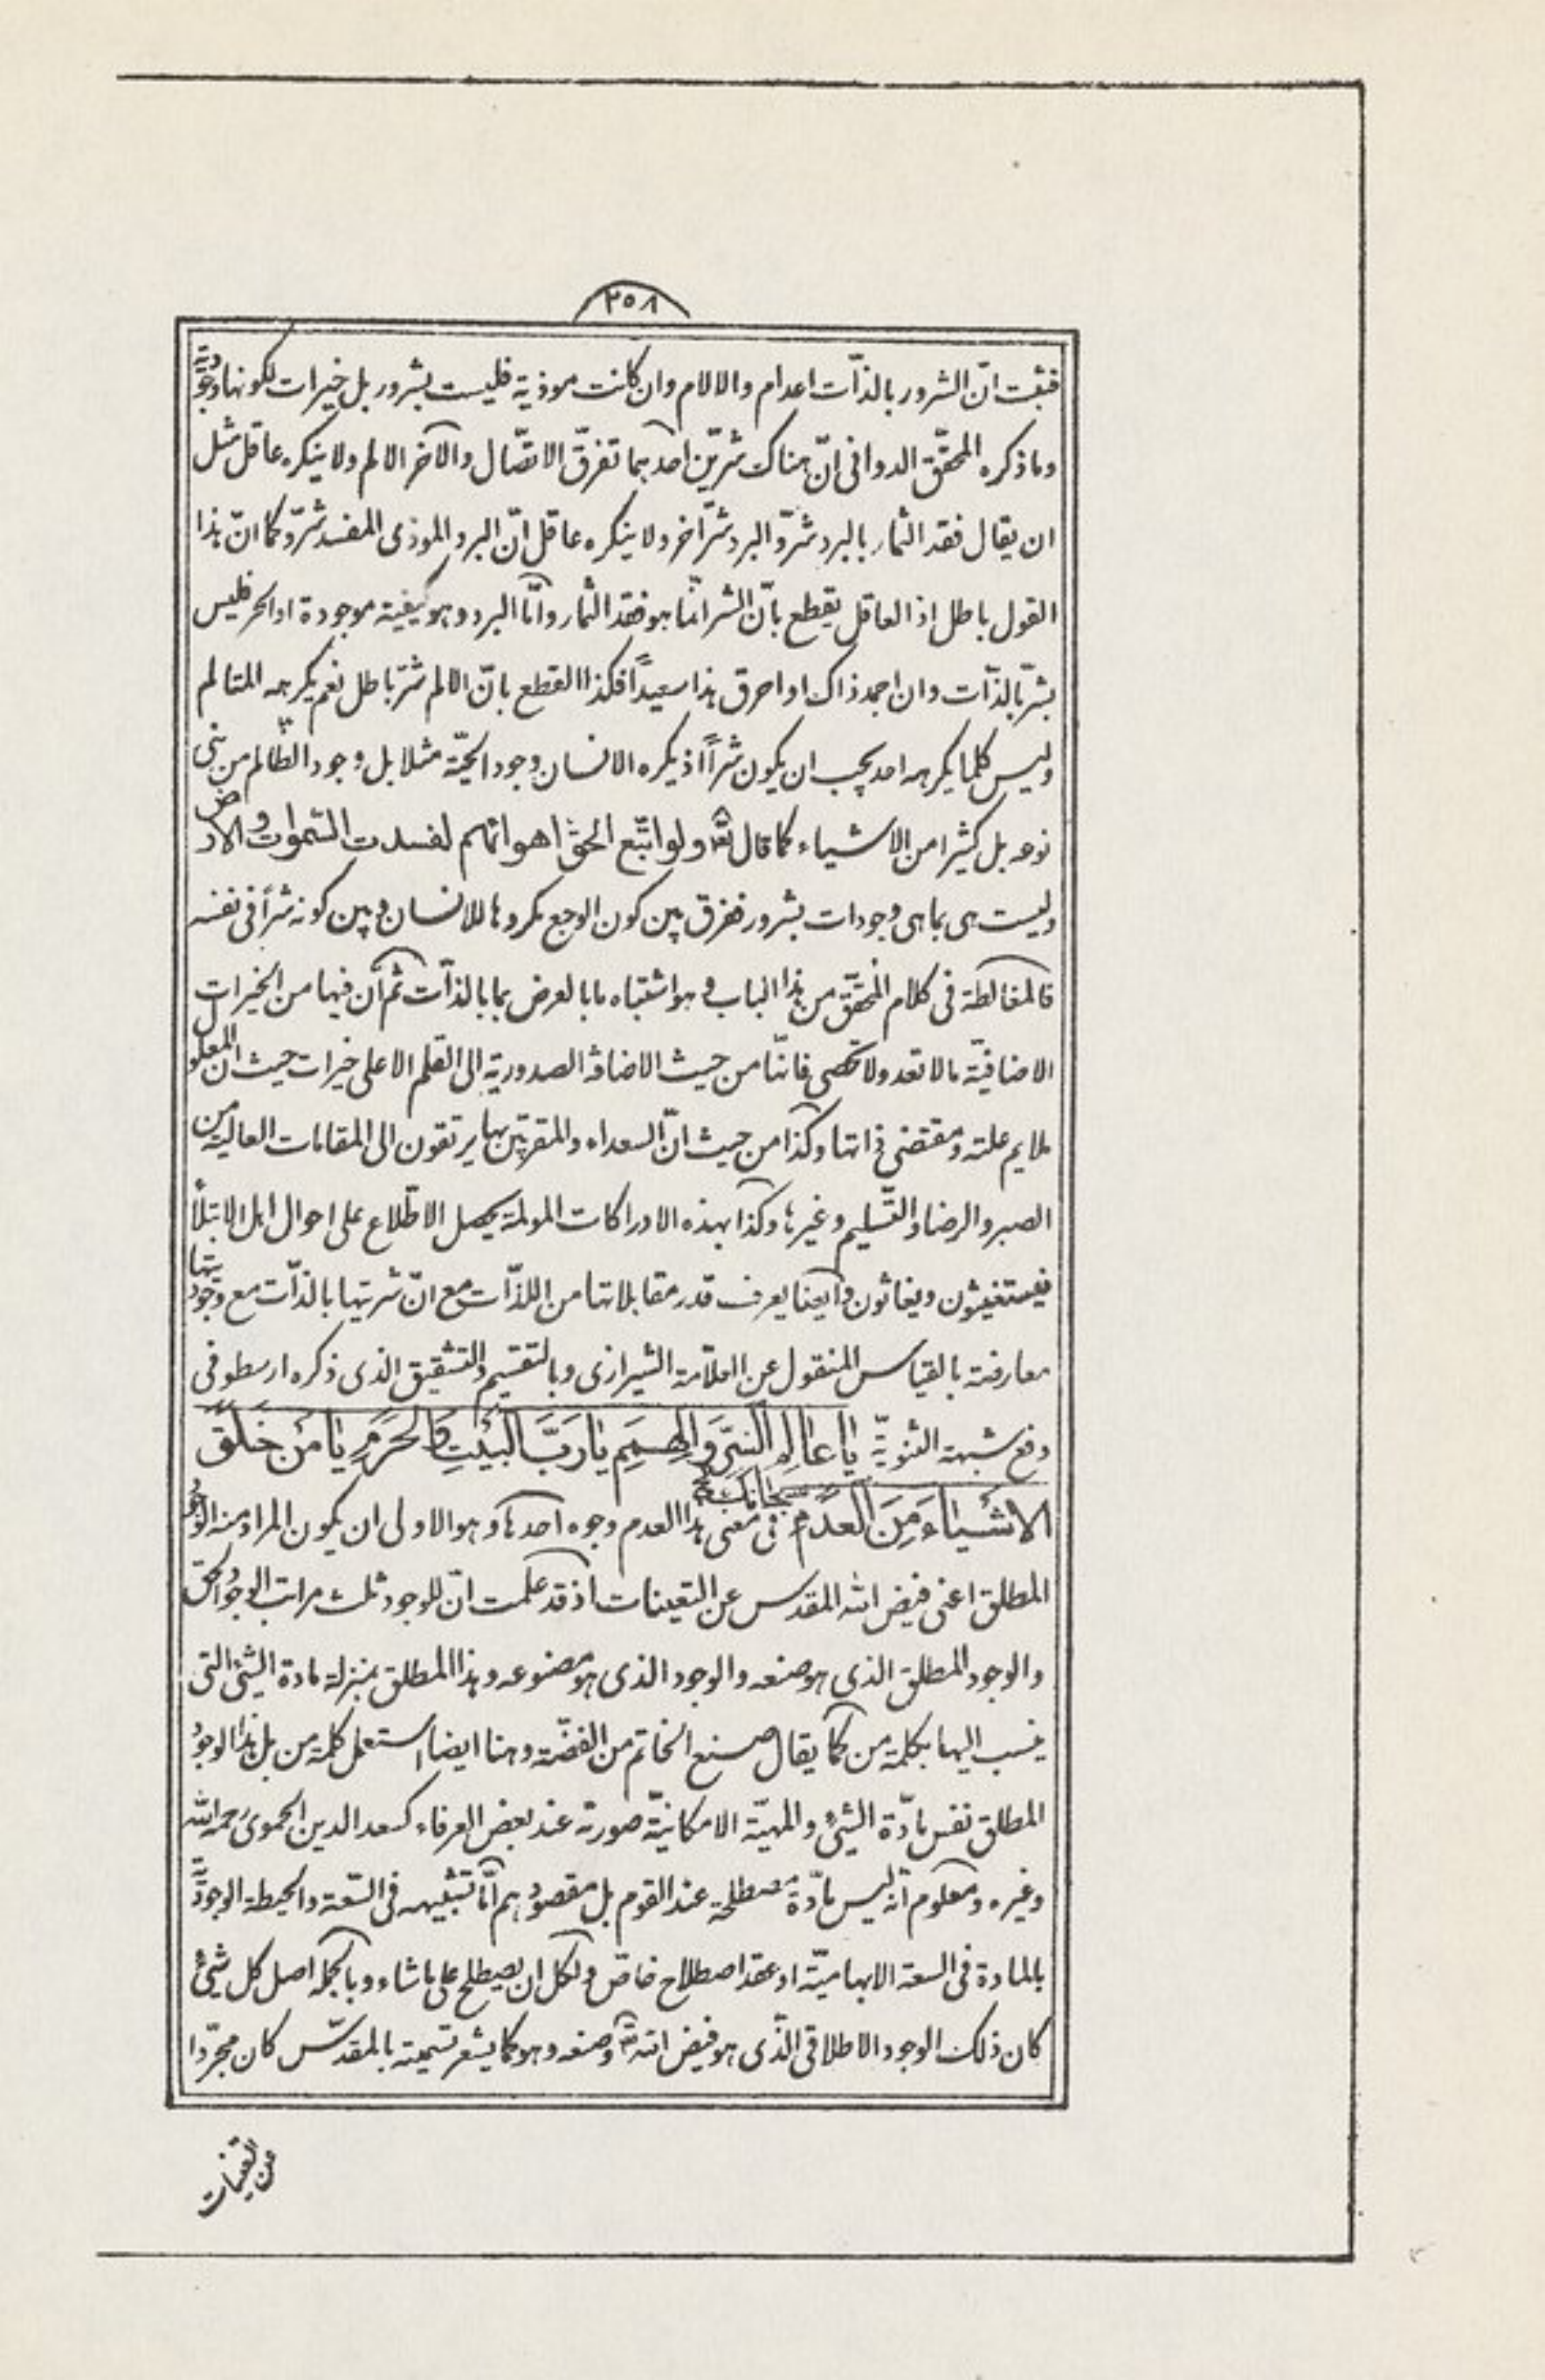 ٢٥٨
فثبت انّ الشرور بالذّات اعدام والالام وان كانت موذية فليست بشرور بل خيرات لكونها وجوديّة
وما ذكره المحقّق الدوانى انّ هناك شرّين احدهما تفرّق الاتّصال والآخر الالم ولا ينكره عاقل مثل
ان يقال فقد الثمار بالبرد شرّ والبرد شرّ آخر ولا ينكره عاقل انّ البرد الموذى المفسد شرّ وكما انّ هذا
القول باطل اذ العاقل يقطع بانّ الشر انّما هو فقد الثمار وامّا البرد وهو كيفية موجودة او الحر فليس
بشرّ بالذّات وان اجمد ذاك او احرق هذا سعيداً فكذا القطع بانّ الالم شرّ باطل نعم يكرهه المتالم
وليس كلما يكرهه احد يجب ان يكون شرّاً اذ يكره الانسان وجود الحيّة مثلا بل وجود الظالم من بنى
نوعه بل كثيرا من الاشياء كما قال تعالى ولو اتّبع الحق اهوائهم لفسدت السّموات والارض
وليست هى بما هى وجودات بشرور ففرق بين كون الوجع مكروها للانسان وبين كونه شرّاً فى نفسه
فالمغالطة فى كلام المحقّق من هذا الباب وهو اشتباه ما بالعرض بما بالذّات ثم انّ فيها من الخيرات
الاضافيّة ما لا تعد ولا تحصى فانّها من حيث الاضافة الصدورية الى القلم الاعلى خيرات حيث ان المعلول
ملايم علته ومقتضى ذاتها وكذا من حيث انّ السعداء والمقربين بها يرتقون الى المقامات العالية من
الصبر والرضا والتّسليم وغيرها وكذا بهذه الادراكات المولمة يحصل الاطّلاع على احوال اهل الابتلاء
فيستغيثون ويغاثون وايضا يعرف قدر مقابلاتها من اللذّات مع انّ شريتها بالذّات مع وجوديتها
معارضة بالقياس المنقول عن العلاّمة الشيرازى وبالتقسيم والتشقيق الذى ذكره ارسطو فى
دفع شبهة الثنويّة يا عالِمَ السِّرِّ وَالهِمَمِ يا رَبَّ البَيْتِ وَالحَرَمِ يا مَنْ خَلَقَ
الاشْيَاءَ مِنَ العَدَمِ سبحانك فى معنى هذا العدم وجوه احدها وهو الاولى ان يكون المراد منه الوجود
المطلق اعنى فيض الله المقدس عن التعينات اذ قد علمت انّ للوجود ثلث مراتب الوجود الحق
والوجود المطلق الذى هو صنعه والوجود الذى هو مصنوعه وهذا المطلق بمنزلة مادة الشيئ التى
ينسب اليها بكلمة من كما يقال صنع الخاتم من الفضّة وهنا ايضا استعمل كلمة من بل هذا الوجود
المطلق نفس مادّة الشيئ والمهيّة الامكانيّة صورته عند بعض العرفاء كسعد الدين الحموى رحمه الله
وغيره ومعلوم انّه ليس مادّة مصطلحة عند القوم بل مقصودهم امّا تشبيهه فى السّعة والحيطة الوجوديّة
بالمادة فى السعة الابهاميّة او عقد اصطلاح خاصّ ولكل ان يصطلح على ما شاء وبالجملة اصل كل شيئ
كان ذلك الوجود الاطلاقى الذّى هو فيض الله تعالى وصنعه وهو كما يشعر تسميته بالمقدّس كان مجرّدا
عن التعينات